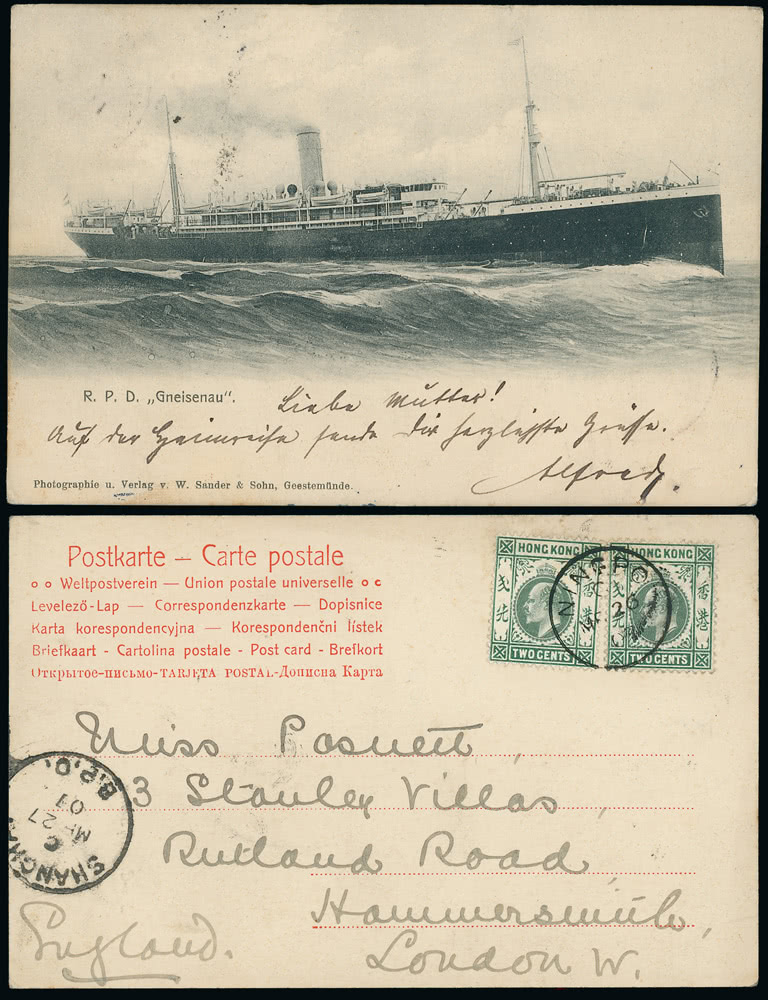 R. P. D. „Gneisenau".
Liebe Mutter!
Auf der Heimreise sende Dir herzlichste Grüsse.
Alfred.
Photographie u. Verlag v. W. Sander & Sohn, Geestemünde.
Postkarte – Carte postale
Weltpostverein — Union postale universelle
Levelező-Lap — Correspondenzkarte — Dopisnice
Karta korespondencyjna — Korespondenčni lístek
Briefkaart - Cartolina postale - Post card - Brefkort
Открытое-письмо-TARJETA POSTAL-Дописна Карта
HONG KONG
香港
TWO CENTS
HONG KONG
香港
TWO CENTS
NINGPO
26
Miss Posnett,
3 Stanley Villas,
Rutland Road,
Hammersmith,
London W.
England.
B.P.O.
27
C
SHANGHA